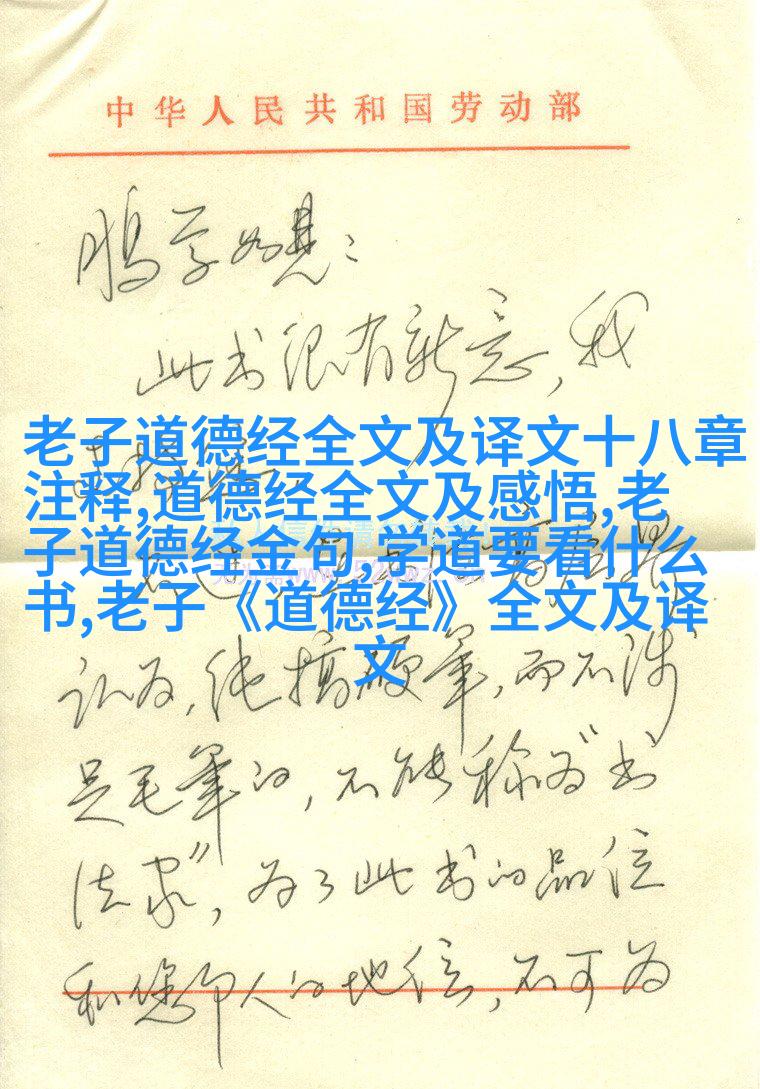 中华人民共和国劳动部
鹏学如晤：
此书很有新意，我
老子道德经全文及译文十八章
注释,道德经全文及感悟,老
子道德经金句,学道要看什么
书,老子《道德经》全文及译
文
认为，纯搞硬笔，而不涉
足毛笔的，不能称为“书
法家”，为了此书的品位
和您个人的地位，不可为